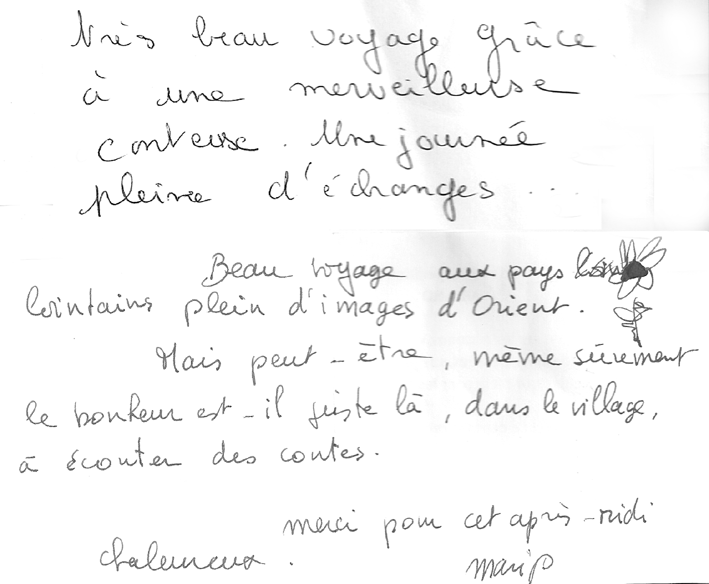 Très beau voyage grâce
à une merveilleuse
conteuse. Une journée
pleine d'échanges ...
Beau voyage aux pays
lointains plein d'images d'Orient.
Mais peut-être, même sûrement
le bonheur est-il juste là, dans le village,
à écouter des contes.
merci pour cet après-midi
chaleureux.